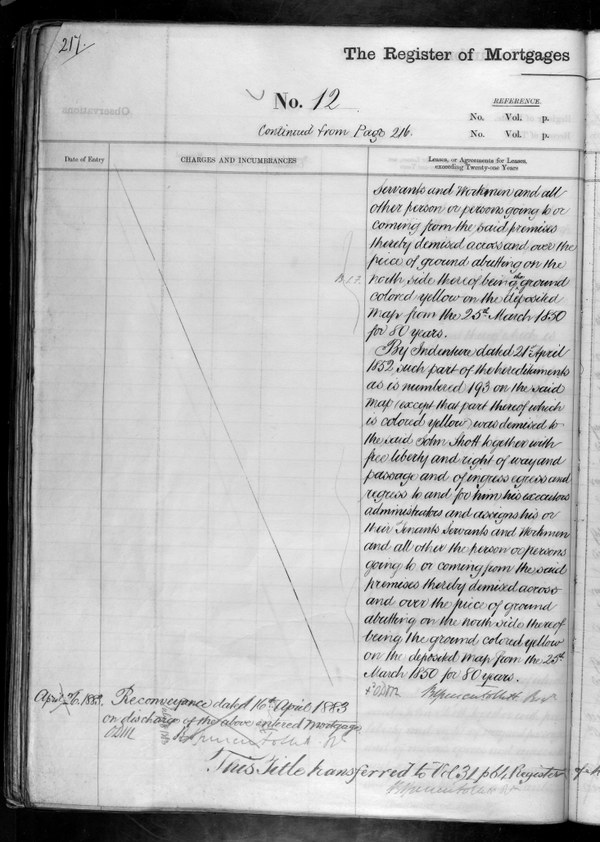 217.
The Register of Mortgages
No. 12
REFERENCE.
No. Vol. p.
Continued from Page 216.
No. Vol. p.
Date of Entry
CHARGES AND INCUMBRANCES
Leases, or Agreements for Leases,
exceeding Twenty-one Years
Servants and Workmen and all
other person or persons going to or
coming from the said premises
thereby demised across and over the
piece of ground abutting on the
north side thereof being the ground
colored yellow on the deposited
map from the 25th March 1850
for 80 years.
By Indenture dated 21st April
1852 such part of the hereditaments
as is numbered 193 on the said
map (except that part thereof which
is colored yellow) was demised to
the said John Shott together with
free liberty and right of way and
passage and of ingress egress and
regress to and for him his executors
administrators and assigns his or
their Tenants Servants and Workmen
and all other the person or persons
going to or coming from the said
premises thereby demised across
and over the piece of ground
abutting on the north side thereof
being the ground colored yellow
on the deposited map from the 25th
March 1850 for 80 years.
April 26. 1883.
Reconveyance dated 16th April 1883
on discharge of the above entered Mortgage.
This Title transferred to Vol 31 p 64, Register of